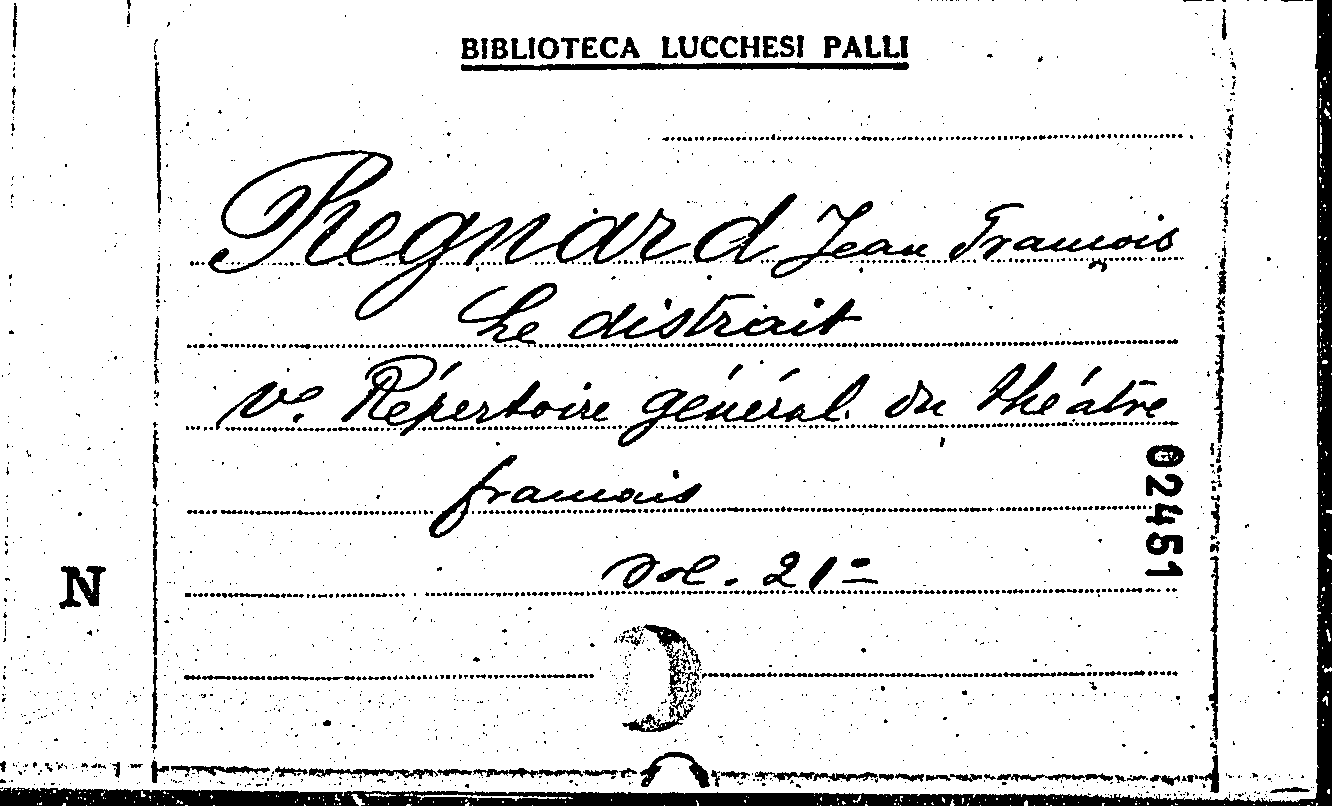 BIBLIOTECA LUCCHESI PALLI
Regnard Jean François
Le distrait
Vo. Répertoire général du théatre
francais
vol. 21º
02451
N